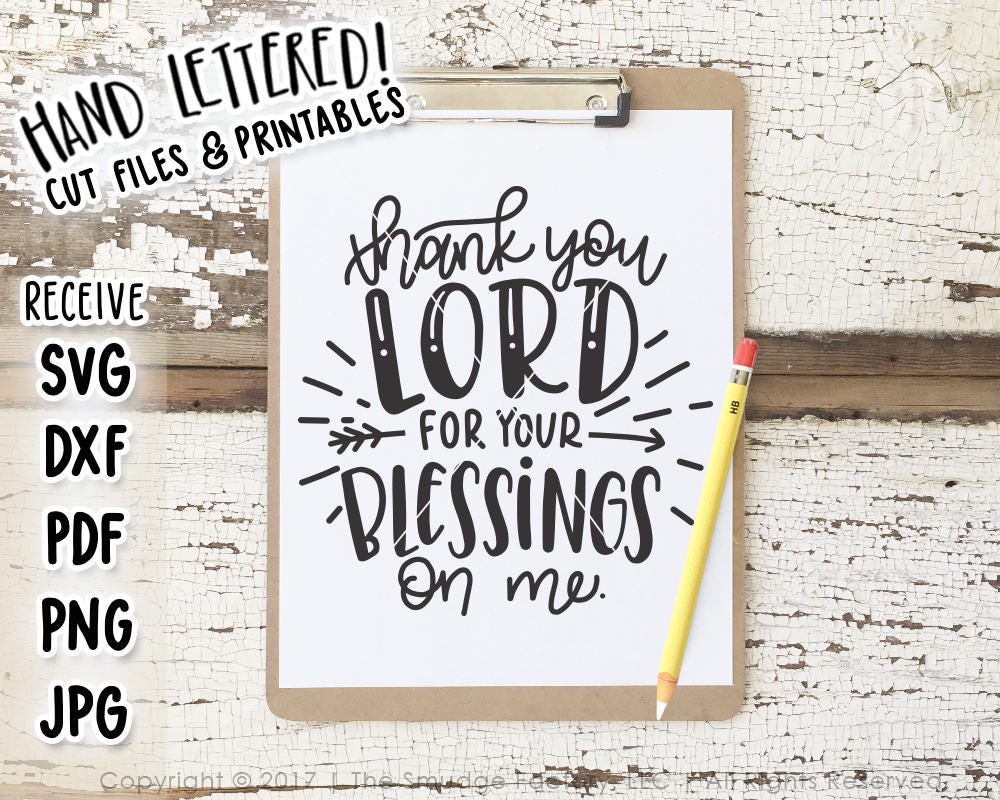 HAND LETTERED!
CUT FILES & PRINTABLES
RECEIVE
SVG
DXF
PDF
PNG
JPG
thank you
LORD
FOR YOUR
BLESSINGS
on me.
HB
Copyright © 2017 | The Smudge Factory, LLC | All Rights Reserved.